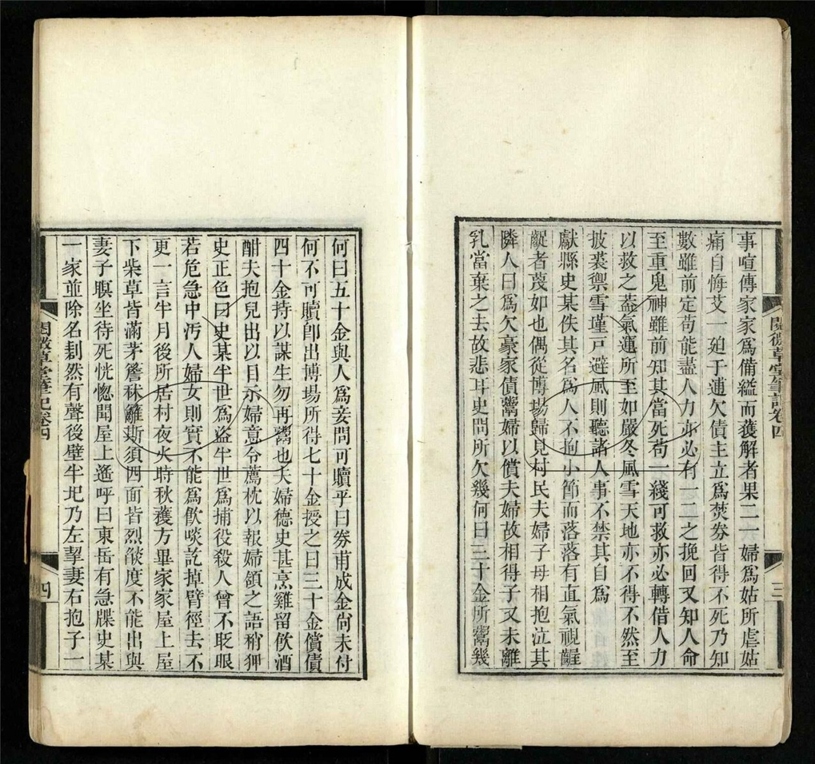 閱微草堂筆記卷四
三
事喧傳家家爲備縊而獲解者果二一婦爲姑所虐姑
痛自悔艾一廹于逋欠債主立爲焚券皆得不死乃知
數雖前定苟能盡人力亦必有一二之挽回又知人命
至重鬼神雖前知其當死苟一綫可救亦必轉借人力
以救之葢氣運所至如嚴冬風雪天地亦不得不然至
披裘禦雪墐戸避風則聽諸人事不禁其自爲
獻縣史某佚其名爲人不拘小節而落落有直氣視齷
齪者蔑如也偶從博塲歸見村民夫婦子母相抱泣其
隣人曰爲欠豪家債鬻婦以償夫婦故相得子又未離
乳當棄之去故悲耳史問所欠幾何曰三十金所鬻幾
何曰五十金與人爲妾問可贖乎曰券甫成金尙未付
何不可贖卽出博塲所得七十金授之曰三十金償債
四十金持以謀生勿再鬻也夫婦德史甚烹雞留飮酒
酣夫抱兒出以目示婦意令薦枕以報婦頷之語稍狎
史正色曰史某半世爲盜半世爲捕役殺人曾不眨眼
若危急中汚人婦女則實不能爲飮啖訖掉臂徑去不
更一言半月後所居村夜火時秋穫方畢家家屋上屋
下柴草皆滿茅簷秫籬斯須四面皆烈燄度不能出與
妻子瞑坐待死恍惚聞屋上遙呼曰東岳有急牒史某
一家並除名剨然有聲後壁半圮乃左挈妻右抱子一
閱微草堂筆記卷四
四